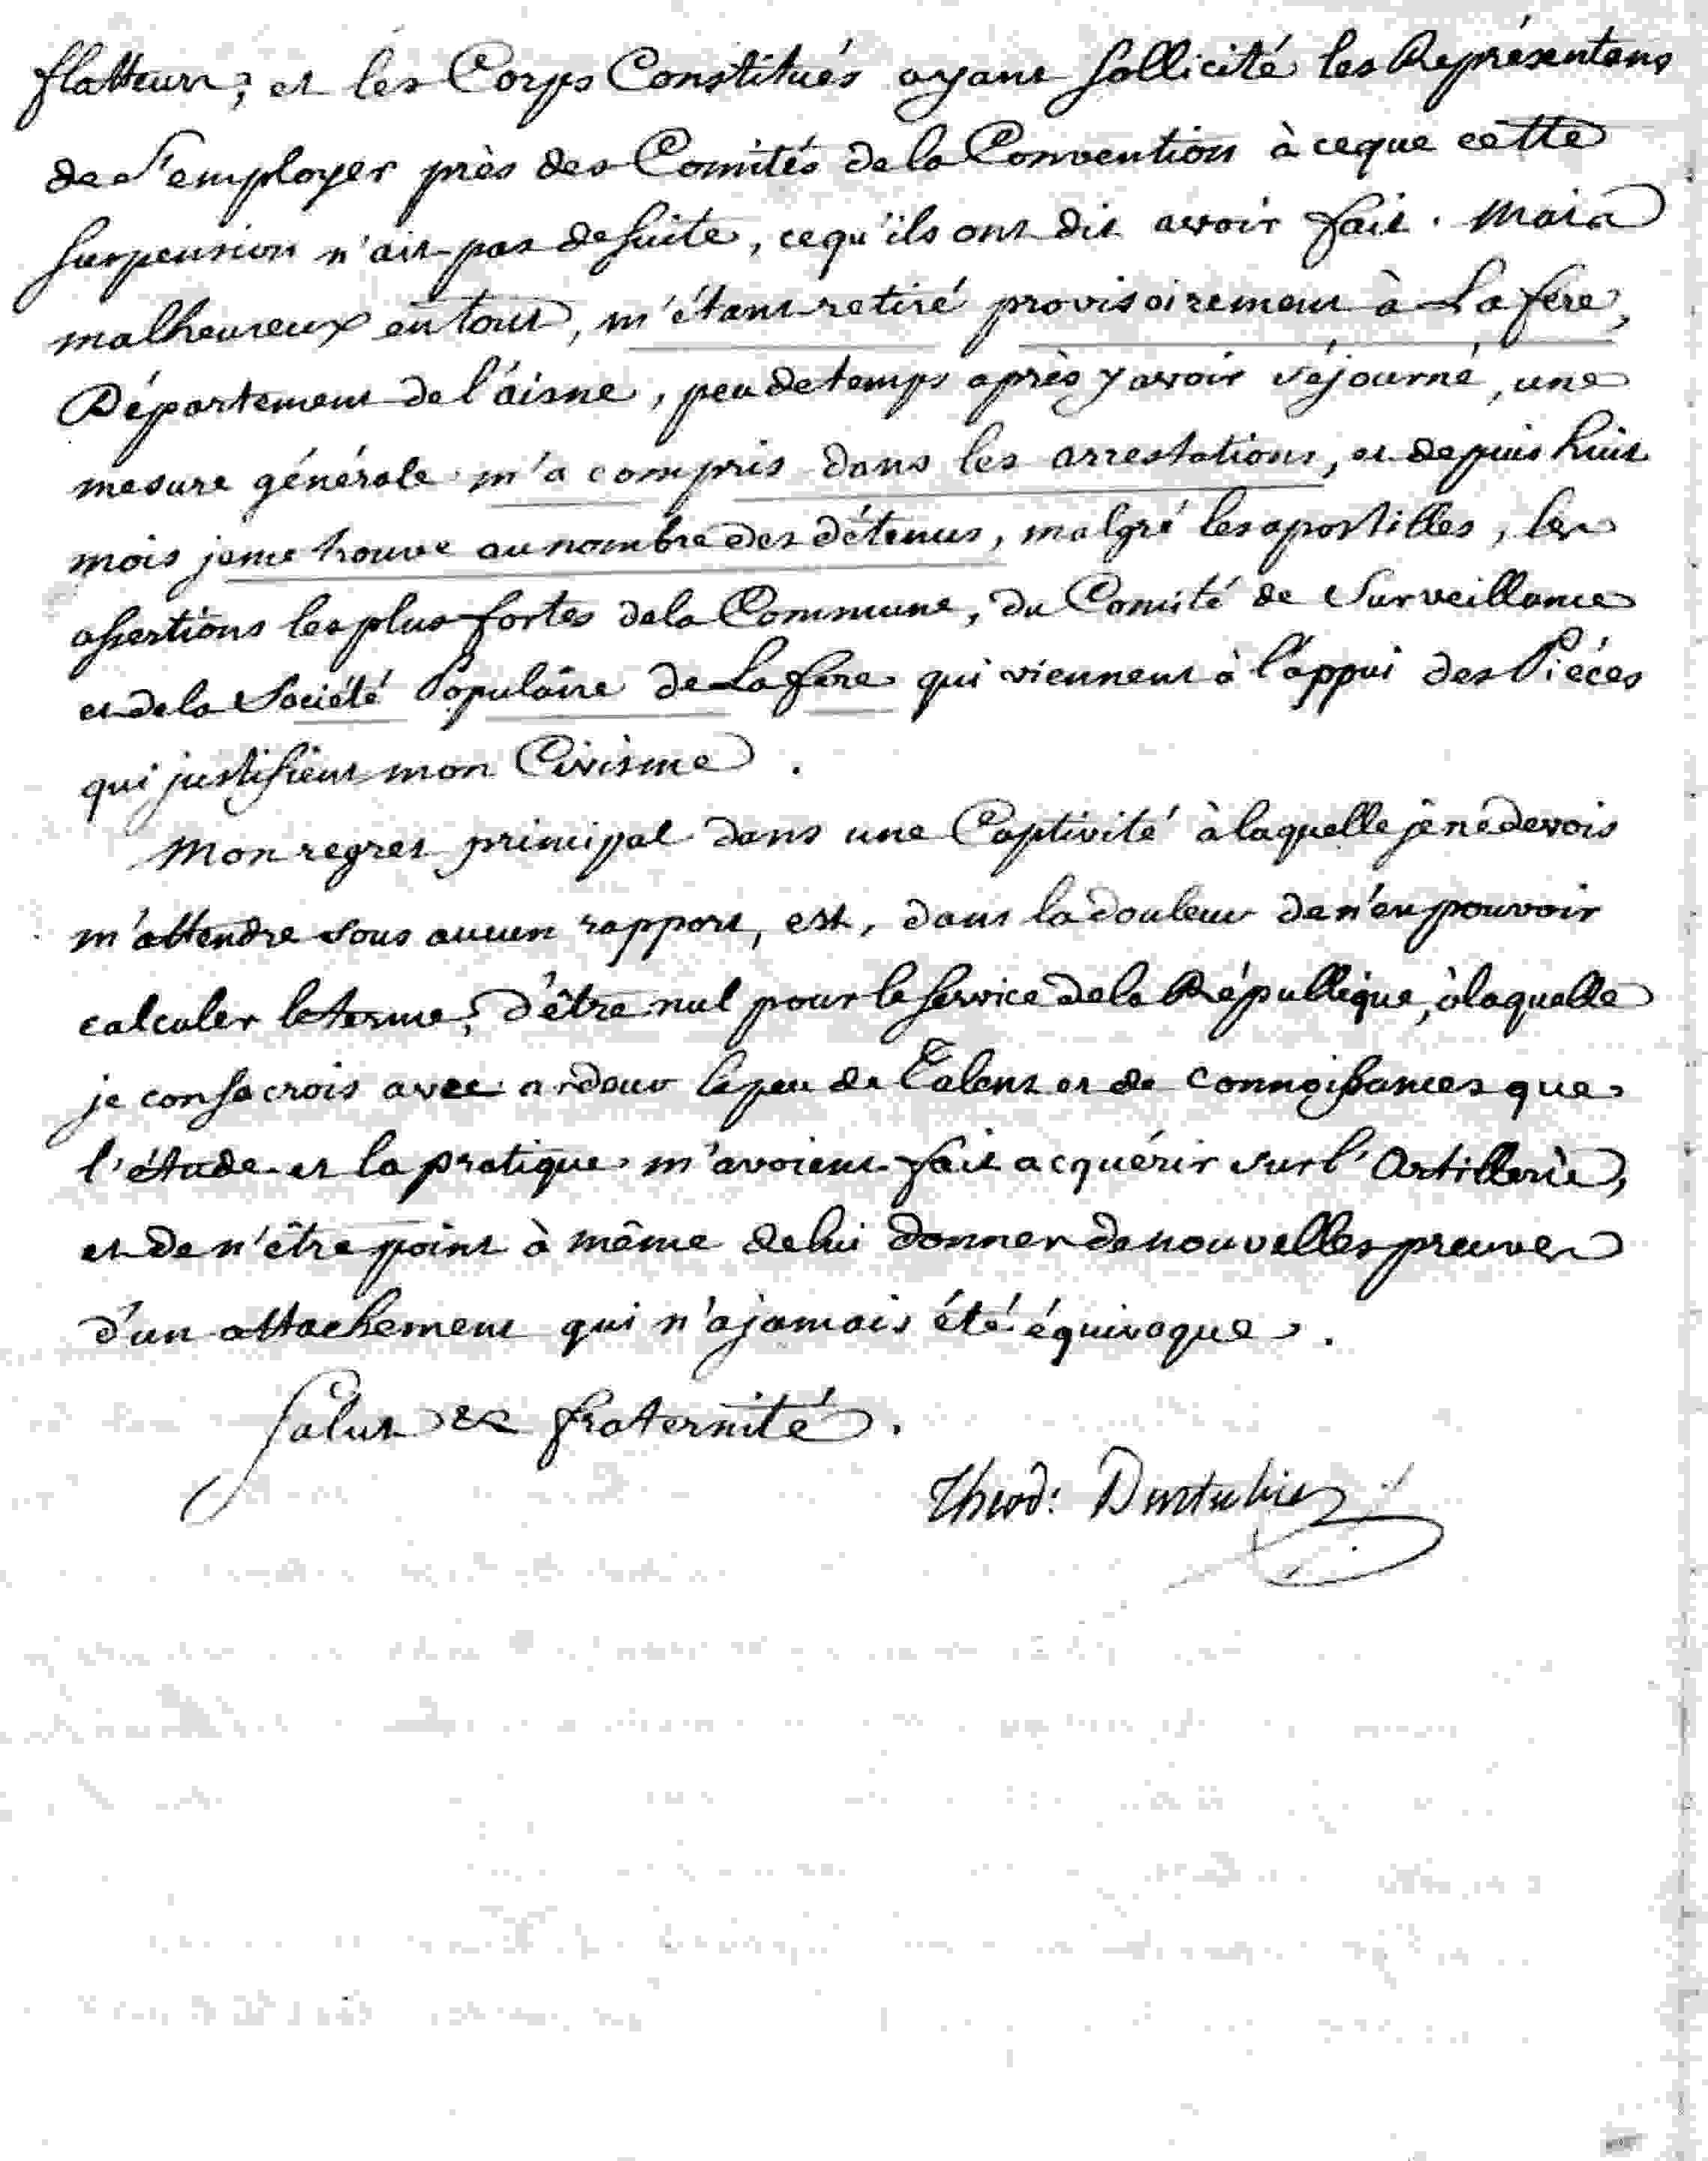 flatteurs; et les Corps Constitués ayant sollicité les Représentans
de s'employer près des Comités de la Convention à ce que cette
suspension n'ait pas de suite, ce qu'ils ont dit avoir fait. Mais
malheureux en tout, m'étant retiré provisoirement à Lafere,
Département de l'aisne, peu de temps après y avoir séjourné, une
mesure générale m'a compris dans les arrestations, et depuis huit
mois je me trouve au nombre des détenus, malgré les apostilles, les
assertions les plus fortes de la Commune, du Comité de Surveillance
et de la Société Populaire de Lafere qui viennent à l'appui des Piéces
qui justifient mon Civisme.
Mon regret principal dans une Captivité à laquelle je ne devois
m'attendre sous aucun rapport, est, dans la douleur de n'en pouvoir
calculer le terme, d'être nul pour le service de la République, à laquelle
je consacrois avec ardeur le peu de Talent et de connoissances que
l'étude et la pratique m'avoient fait acquérir sur l'Artillerie,
et de n'être point à même de lui donner de nouvelles preuves
d'un attachement qui n'a jamais été équivoque.
Salut et fraternité.
Theod: Durtubie